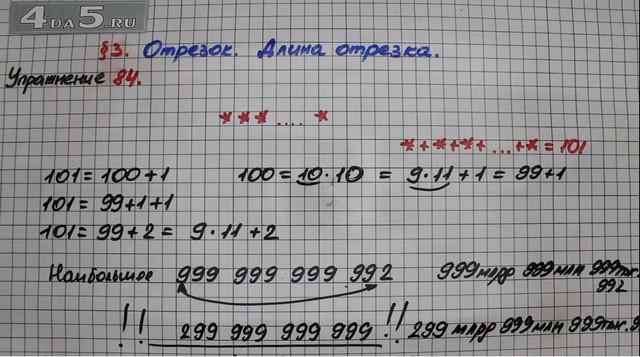 4DA5.RU
§3. Отрезок. Длина отрезка.
Упражнение 84.
* * * .... *
*+*+*+ ...+*=101
101 = 100+1 100 = 10·10 = 9·11+1 = 99+1
101 = 99+1+1
101 = 99+2 = 9·11+2
Наибольшое 999 999 999 992 999 млрд 999 млн 999 тыс.
992
!! 299 999 999 999 !! 299 млрд 999 млн 999 тыс. 9